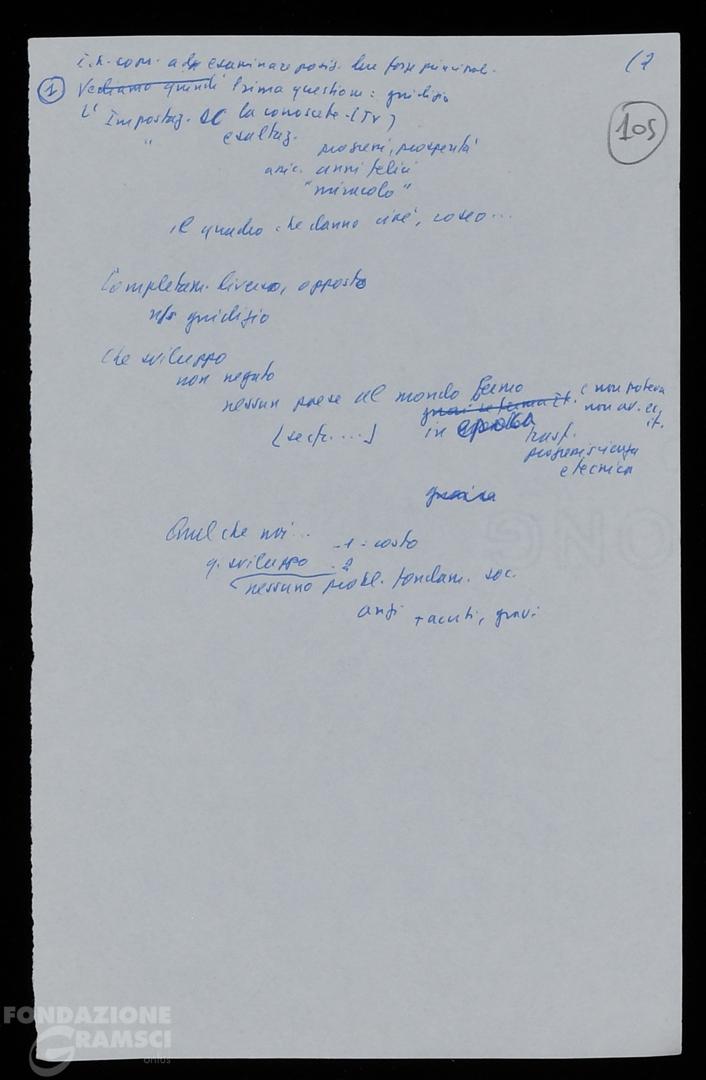 (7
105
esaminare posiz. due forze principal.
① Vediamo quindi Prima questione: giudizio
L' Impostaz. DC la conoscete (TV)
" esaltaz.
progressi, prosperità
anni felici
"miracolo"
il quadro che danno cine, 
Completam. diverso, opposto
ns giudizio
Che sviluppo
non negato
nessun paese del mondo fermo e non poteva
non av.
in epoca it.
trasf.
progressi scienza
e tecnica
Quel che noi...
- 1 = costo
q. sviluppo - 2
nessuno probl. fondam. soc.
anzi + acuti, gravi
ONG
FONDAZIONE
GRAMSCI
onlus